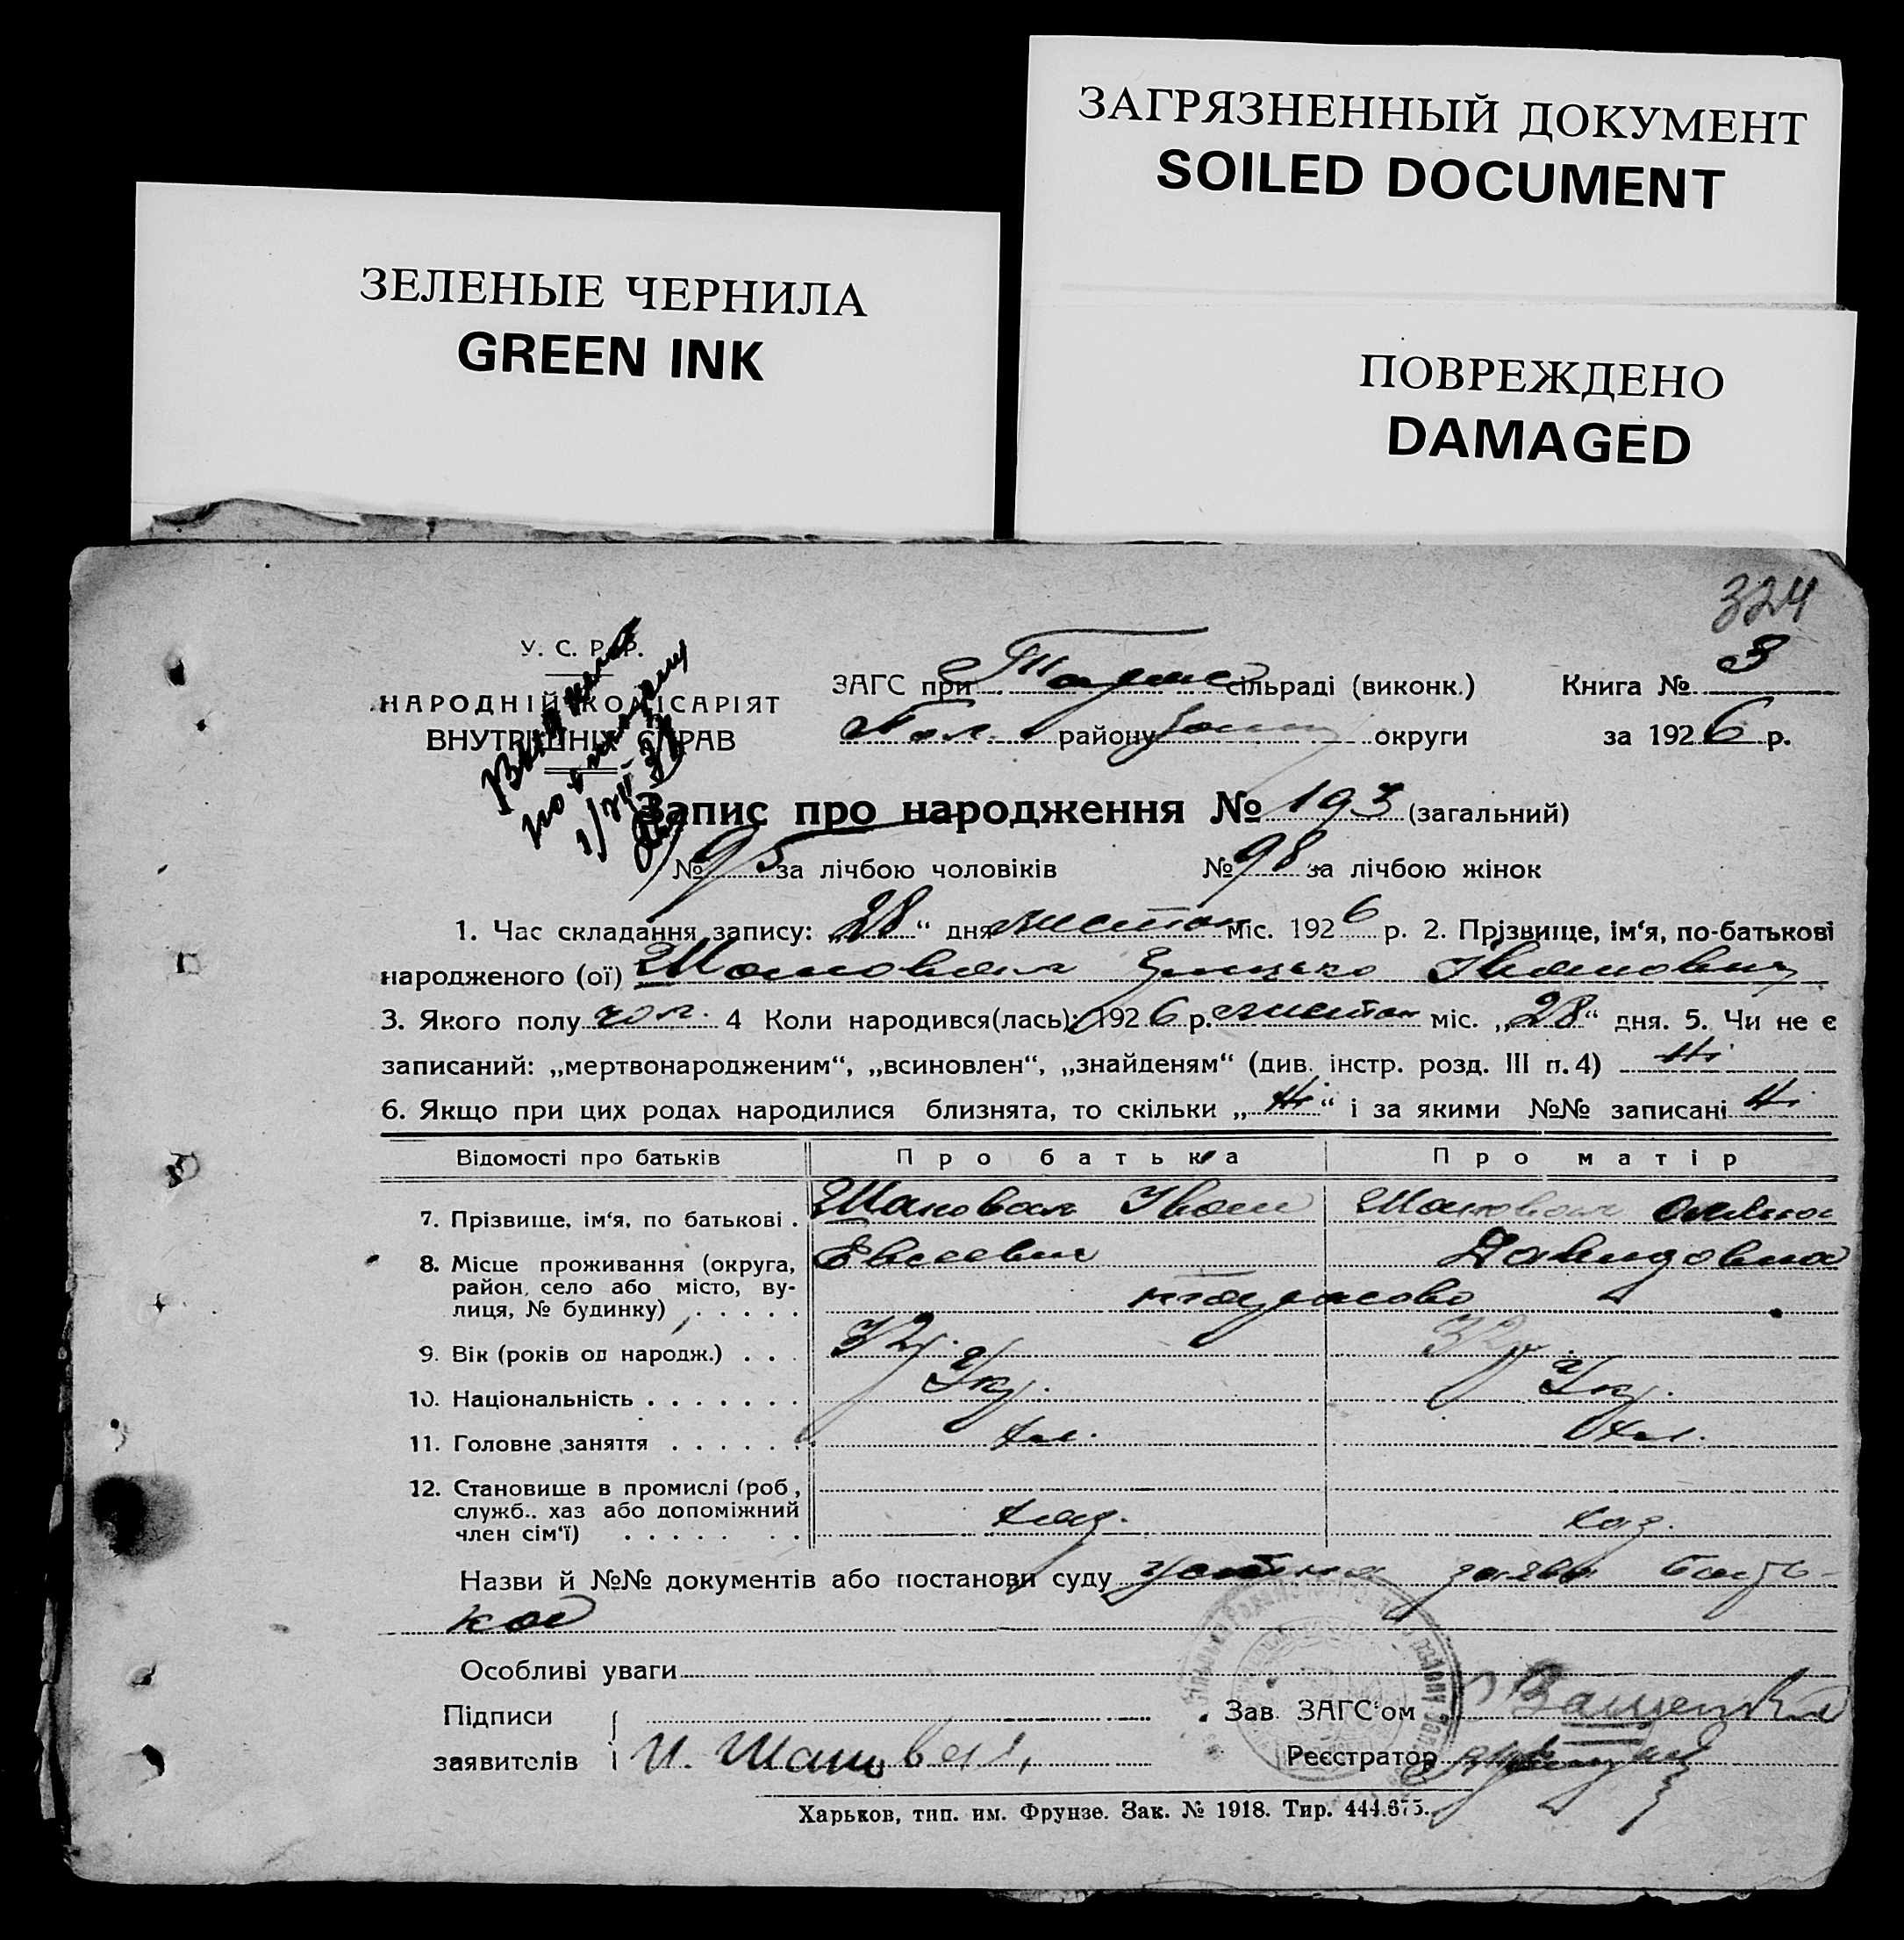 ЗАГРЯЗНЕННЫЙ ДОКУМЕНТ
SOILED DOCUMENT
ЗЕЛЕНЫЕ ЧЕРНИЛА
GREEN INK
ПОВРЕЖДЕНО
DAMAGED
324
У. С. Р. Р.
НАРОДНІЙ КОМІСАРІЯТ
ВНУТРІШНІХ СПРАВ
ЗАГС при сільраді (виконк.) Книга № 3
Пол. району округи за 1926 р.
Запис про народження № 193 (загальний)
№ 95 за лічбою чоловіків № 98 за лічбою жінок
1. Час складання запису: „28“ дня листоп міс. 1926 р. 2. Прізвище, ім‘я, по-батькові
народженого (ої) Шаповал Іванович
3. Якого полу чол. 4 Коли народився(лась): 1926 р. листоп міс. „28“ дня. 5. Чи не є
записаний: „мертвонародженим“, „всиновлен“, „знайденям“ (див. інстр. розд. III п. 4) Ні
6. Якщо при цих родах народилися близнята, то скільки „Ні“ і за якими №№ записані Ні
Відомості про батьків Про батька Про матір
7. Прізвище, ім‘я, по батькові . Шаповал Іван Шаповал
8. Місце проживання (округа, Евсеевич Давидовна
район, село або місто, ву-
лиця, № будинку) . . . . .
9. Вік (років од народж.) . . . 32 32
10. Національність . . . . . . . Укр. Укр.
11. Головне заняття . . . . . . хл. хл.
12. Становище в промислі (роб,
служб.. хаз або допоміжний
член сім‘ї) . . . . . . . хаз. хаз.
Назви й №№ документів або постанови суду устная заява бать-
ков
Особливі уваги
Підписи Зав. ЗАГС‘ом Ващенко
заявителів И. Шаповал Реєстратор
Харьков, тип. им. Фрунзе. Зак. № 1918. Тир. 444.675.